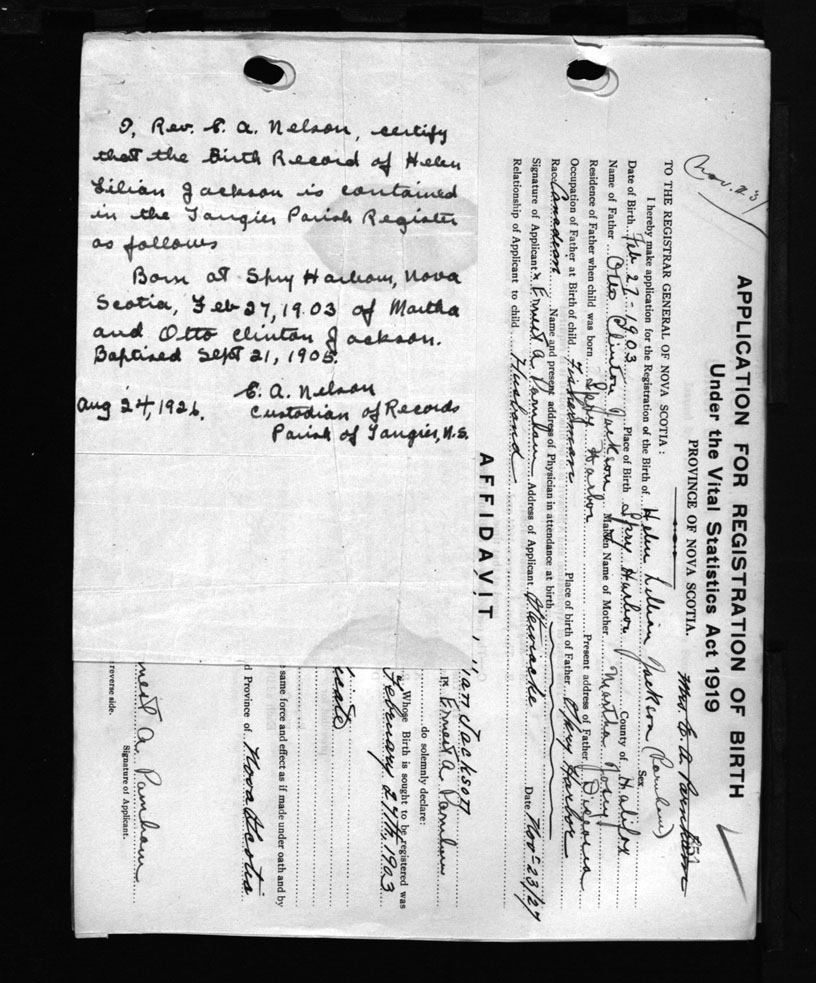 I, Rev. E. A. Nelson, certify
that the Birth Record of Helen
Lilian Jackson is contained
in the Tangier Parish Register
as follows
Born at Spry Harbour, Nova
Scotia, Feb 27, 1903 of Martha
and Otto Clinton Jackson.
Baptized Sept 21, 1905.
E. A. Nelson
Aug 24, 1926. Custodian of Records
Parish of Tangier, N.S.
(Nov. 23)
APPLICATION FOR REGISTRATION OF BIRTH
Under the Vital Statistics Act 1919
PROVINCE OF NOVA SCOTIA.
Mrs E. A. Parnham
TO THE REGISTRAR GENERAL OF NOVA SCOTIA:
I hereby make application for the Registration of the Birth of Helen Lillian Jackson (Parnham) Sex
Date of Birth Feb 27-1903 Place of Birth Spry Harbor County of Halifax
Name of Father Otto Clinton Jackson Maiden Name of Mother Martha
Residence of Father when child was born Spry Harbor Present address of Father
Occupation of Father at Birth of child Fisherman Place of birth of Father Spry Harbor
Race Canadian Name and present address of Physician in attendance at birth
Signature of Applicant Ernest A. Parnham Address of Applicant Date Nov-23/27
Relationship of Applicant to child Husband
AFFIDAVIT
ian Jackson
I, Ernest A. Parnham
do solemnly declare:
Whose Birth is sought to be registered was
February 27th, 1903
icate)
same force and effect as if made under oath and by
d Province of Nova Scotia
nest A. Parnham
Signature of Applicant.
reverse side.